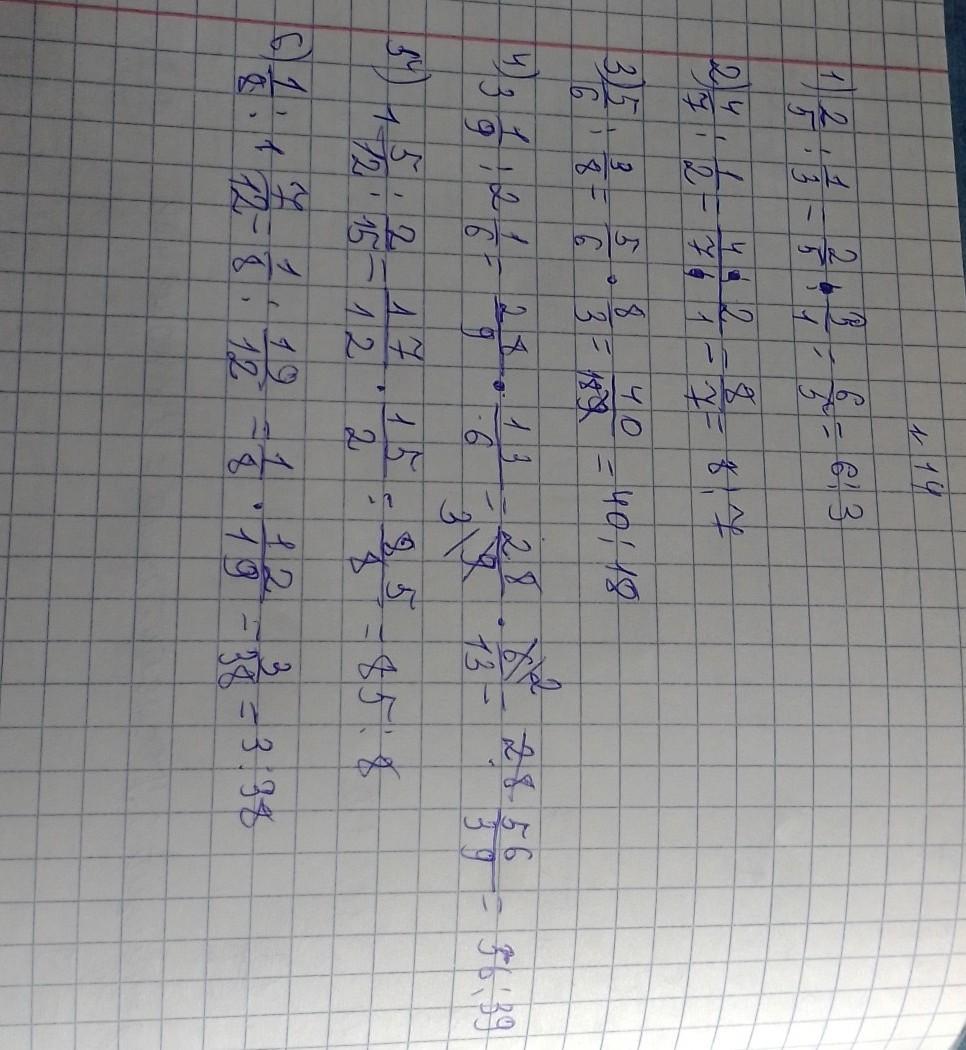 1.14
1) 2/5 : 1/3 = 2/5 · 3/1 = 6/5 = 6:3
2) 4/7 : 1/2 = 4/7 · 2/1 = 8/7 = 8:7
3) 5/6 : 3/8 = 5/6 · 8/3 = 40/18 = 40:18
4) 3 1/9 : 2 1/6 = 28/9 · 13/6 = 28/9 · 6/13 = 56/39 = 56:39
5) 1 5/12 : 2/15 = 17/12 · 15/2 = 85/8 = 85:8
6) 1/8 : 1 7/12 = 1/8 : 19/12 = 1/8 · 12/19 = 3/38 = 3:38